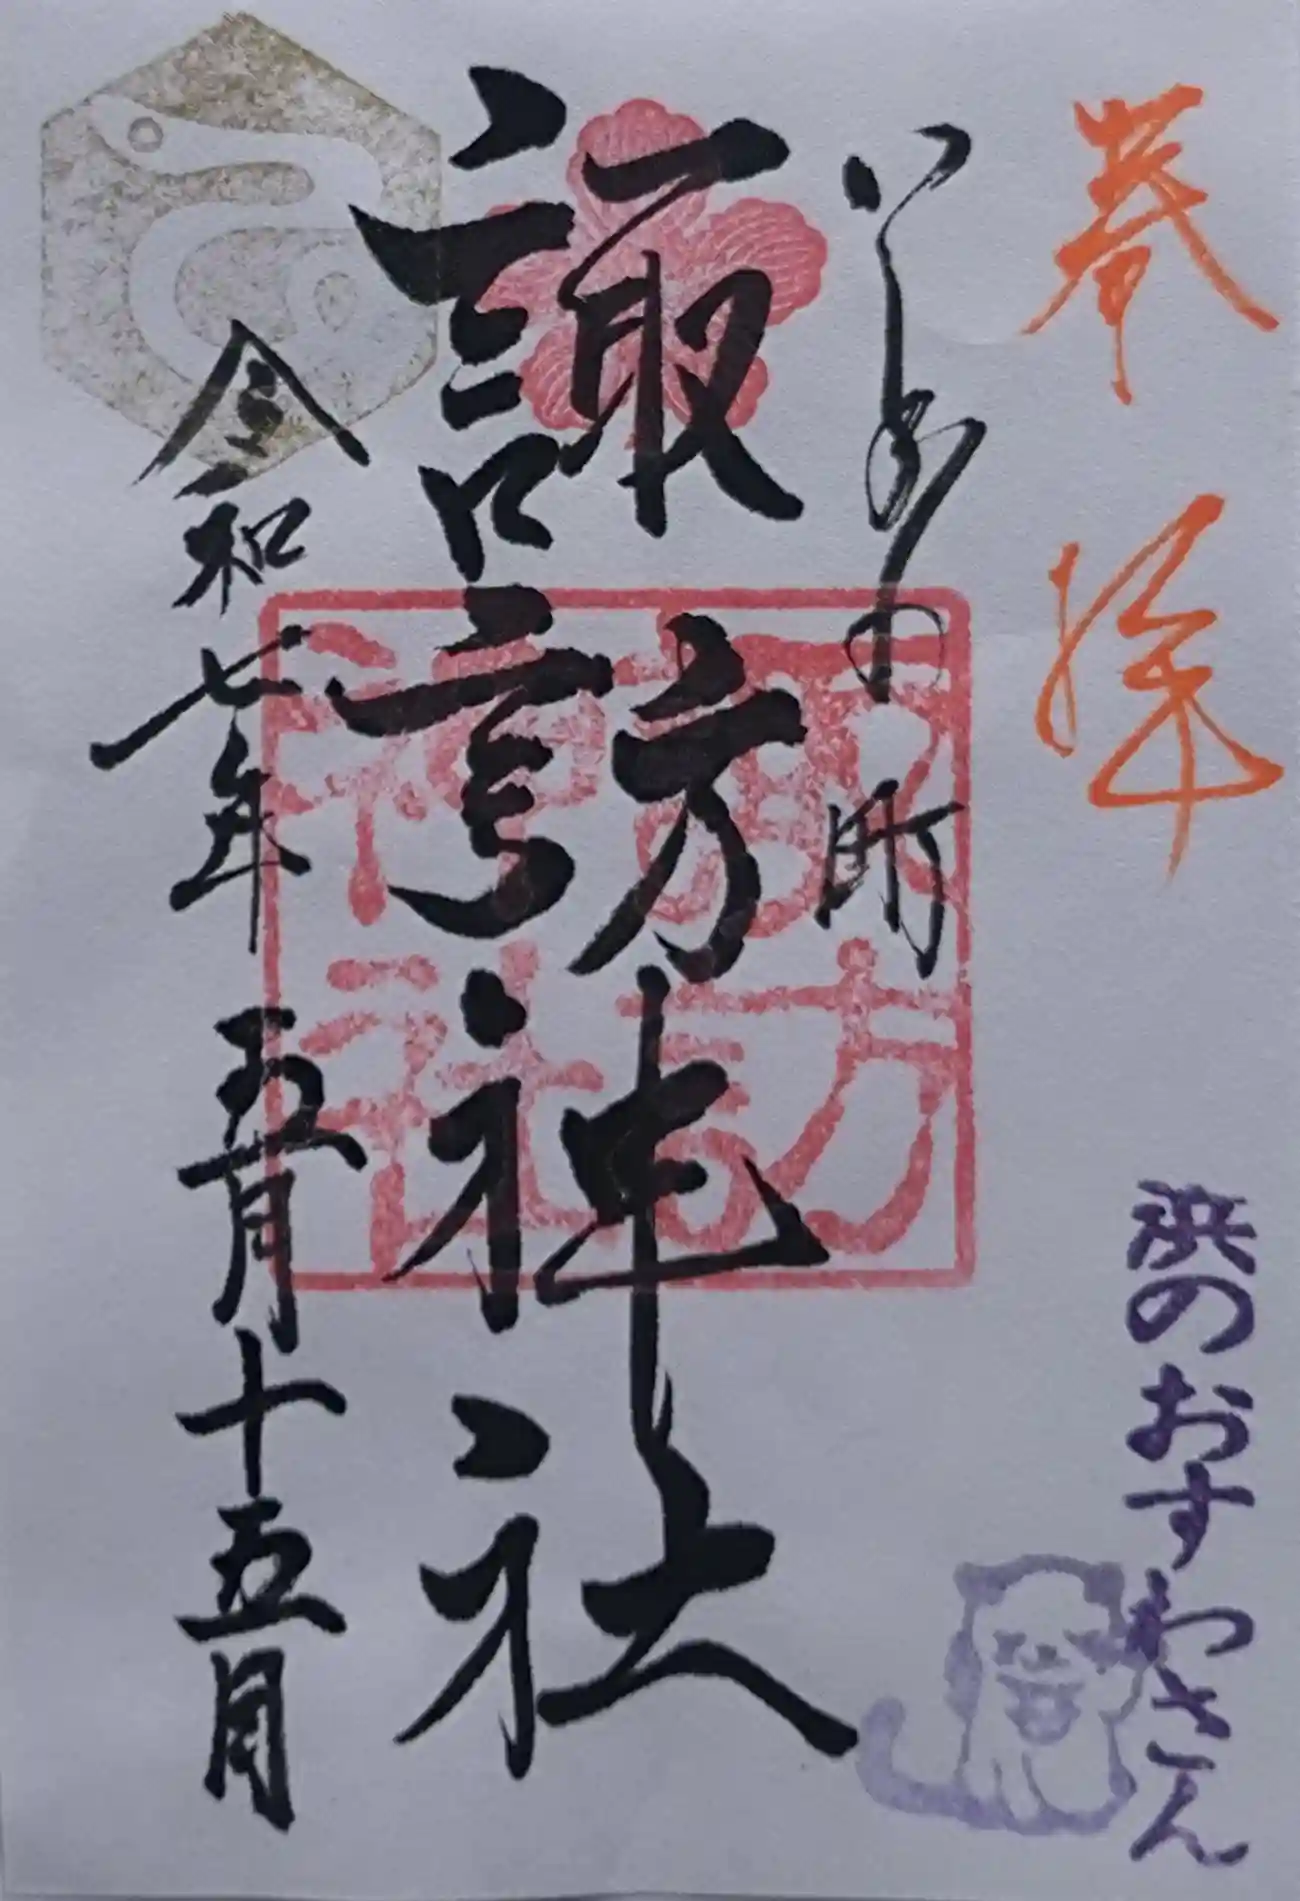 奉拝
浜のおすわさん
町
諏訪神社
諏訪神社
令和七年五月十五日